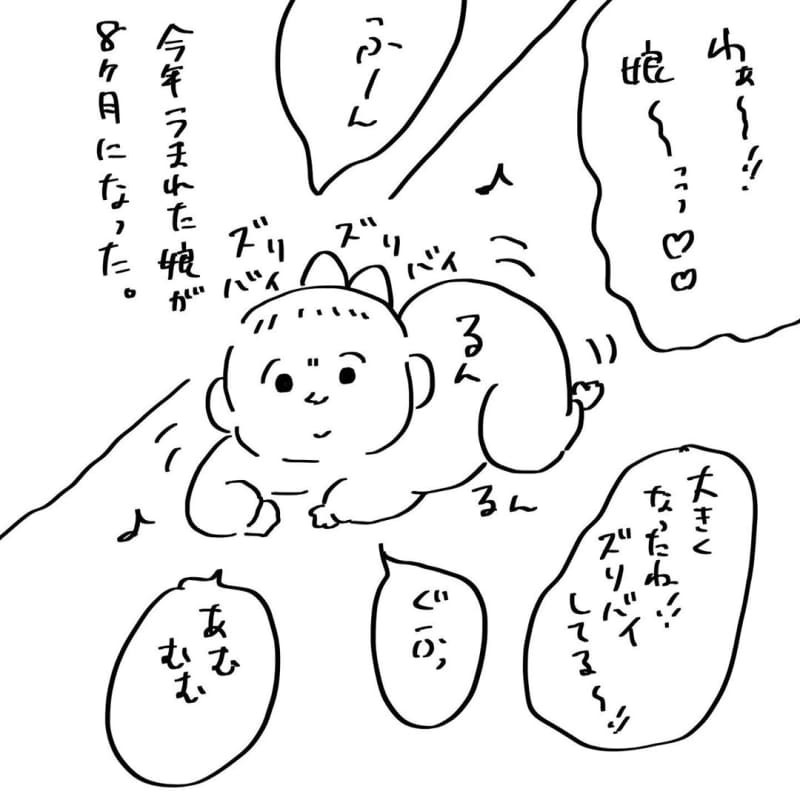 わぁ〜!!
娘〜〜っっ♡♡
っふーん
今年うまれた娘が
8ヶ月になった。
ズリ
バイ
ズリ
バイ
るん
るん
大きく
なったね!!
ズリバイ
してる〜!!
ぐふっ
あむ
むむ